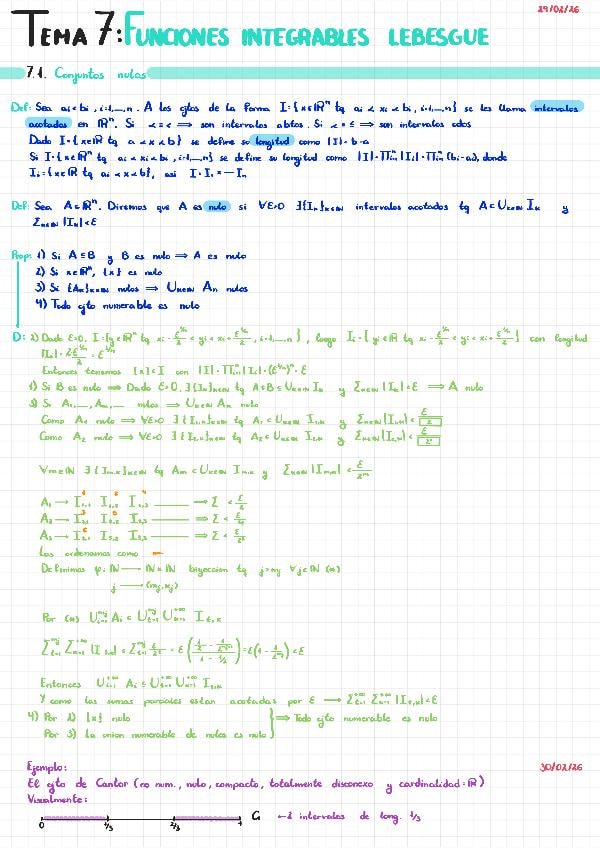 29/02/26
TEMA 7: FUNCIONES INTEGRABLES LEBESGUE
7.1. Conjuntos nulos
Def: Sea ai<bi, i=1,...,n. A los cjtos de la forma I={x∈ℝⁿ tq ai < xi < bi, i=1,...,n} se les llama intervalos
acotados en ℝⁿ. Si <=< ⟹ son intervalos abtos. Si <=≤ ⟹ son intervalos cdos
Dado I={x∈ℝ tq a<x<b} se define su longitud como |I|=b-a
Si I={x∈ℝⁿ tq ai<xi<bi, i=1,...,n} se define su longitud como |I|=∏ |Ii|=∏ (bi-ai), donde
Ii={x∈ℝ tq ai<x<bi}, así I=I₁×...×In
Def: Sea A⊂ℝⁿ. Diremos que A es nulo si ∀ε>0 ∃{Ik}k∈ℕ intervalos acotados tq A⊂∪k∈ℕ Ik y
Σk∈ℕ |Ik|<ε
Prop: 1) Si A⊆B y B es nulo ⟹ A es nulo
2) Si x∈ℝⁿ, {x} es nulo
3) Si {An}n∈ℕ nulos ⟹ ∪n∈ℕ An nulos
4) Todo cjto numerable es nulo
D: 2) Dado ε>0, I={y∈ℝⁿ tq xi - ε^{1/n}/2 < yi < xi + ε^{1/n}/2, i=1,...,n}, luego Ii={yi∈ℝ tq xi - ε^{1/n}/2 < yi < xi + ε^{1/n}/2} con longitud
|Ii|=2ε^{1/n}/2=ε^{1/n}
Entonces tenemos {x}⊂I con |I|=∏|Ii|=(ε^{1/n})ⁿ=ε
1) Si B es nulo ⟹ Dado ε>0, ∃{Ik}k∈ℕ tq A⊂B⊂∪k∈ℕ Ik y Σk∈ℕ |Ik|<ε ⟹ A nulo
3) Si A₁,...,An,... nulos ⟹ ∪n∈ℕ An nulo
Como A₁ nulo ⟹ ∀ε>0 ∃{I₁,k}k∈ℕ tq A₁⊂∪k∈ℕ I₁,k y Σk∈ℕ |I₁,k|< ε/2
Como A₂ nulo ⟹ ∀ε>0 ∃{I₂,k}k∈ℕ tq A₂⊂∪k∈ℕ I₂,k y Σk∈ℕ |I₂,k|< ε/2²
∀m∈ℕ ∃{Im,k}k∈ℕ tq Am⊂∪k∈ℕ Im,k y Σk∈ℕ |Im,k|< ε/2ᵐ
A₁ → I₁,₁ I₁,₂ I₁,₃ ⟹ Σ < ε/2
A₂ → I₂,₁ I₂,₂ I₂,₃ ⟹ Σ < ε/2²
A₃ → I₃,₁ I₃,₂ I₃,₃ ⟹ Σ < ε/2³
Los ordenamos como
Definimos φ: ℕ → ℕ×ℕ biyección tq j>mj ∀j∈ℕ (*)
j → (mj,kj)
Por (*) ∪ Ai ⊂ ∪ ∪ I t,k
Σ Σ |I t,k| < Σ ε/2ᵗ = ε(...) = ε(1 - 1/2^{mj}) < ε
Entonces ∪ Ai ⊆ ∪ ∪ I t,k
Y como las sumas parciales estan acotadas por ε ⟶ Σ Σ |I t,k|<ε
4) Por 2) {x} nulo
⟹ Todo cjto numerable es nulo
Por 3) la union numerable de nulos es nulo
Ejemplo:
30/02/26
El cjto de Cantor (no num., nulo, compacto, totalmente disconexo y cardinalidad=ℝ)
Visualmente:
0 1/3 2/3 1 C₁ ←2 intervalos de long. 1/3